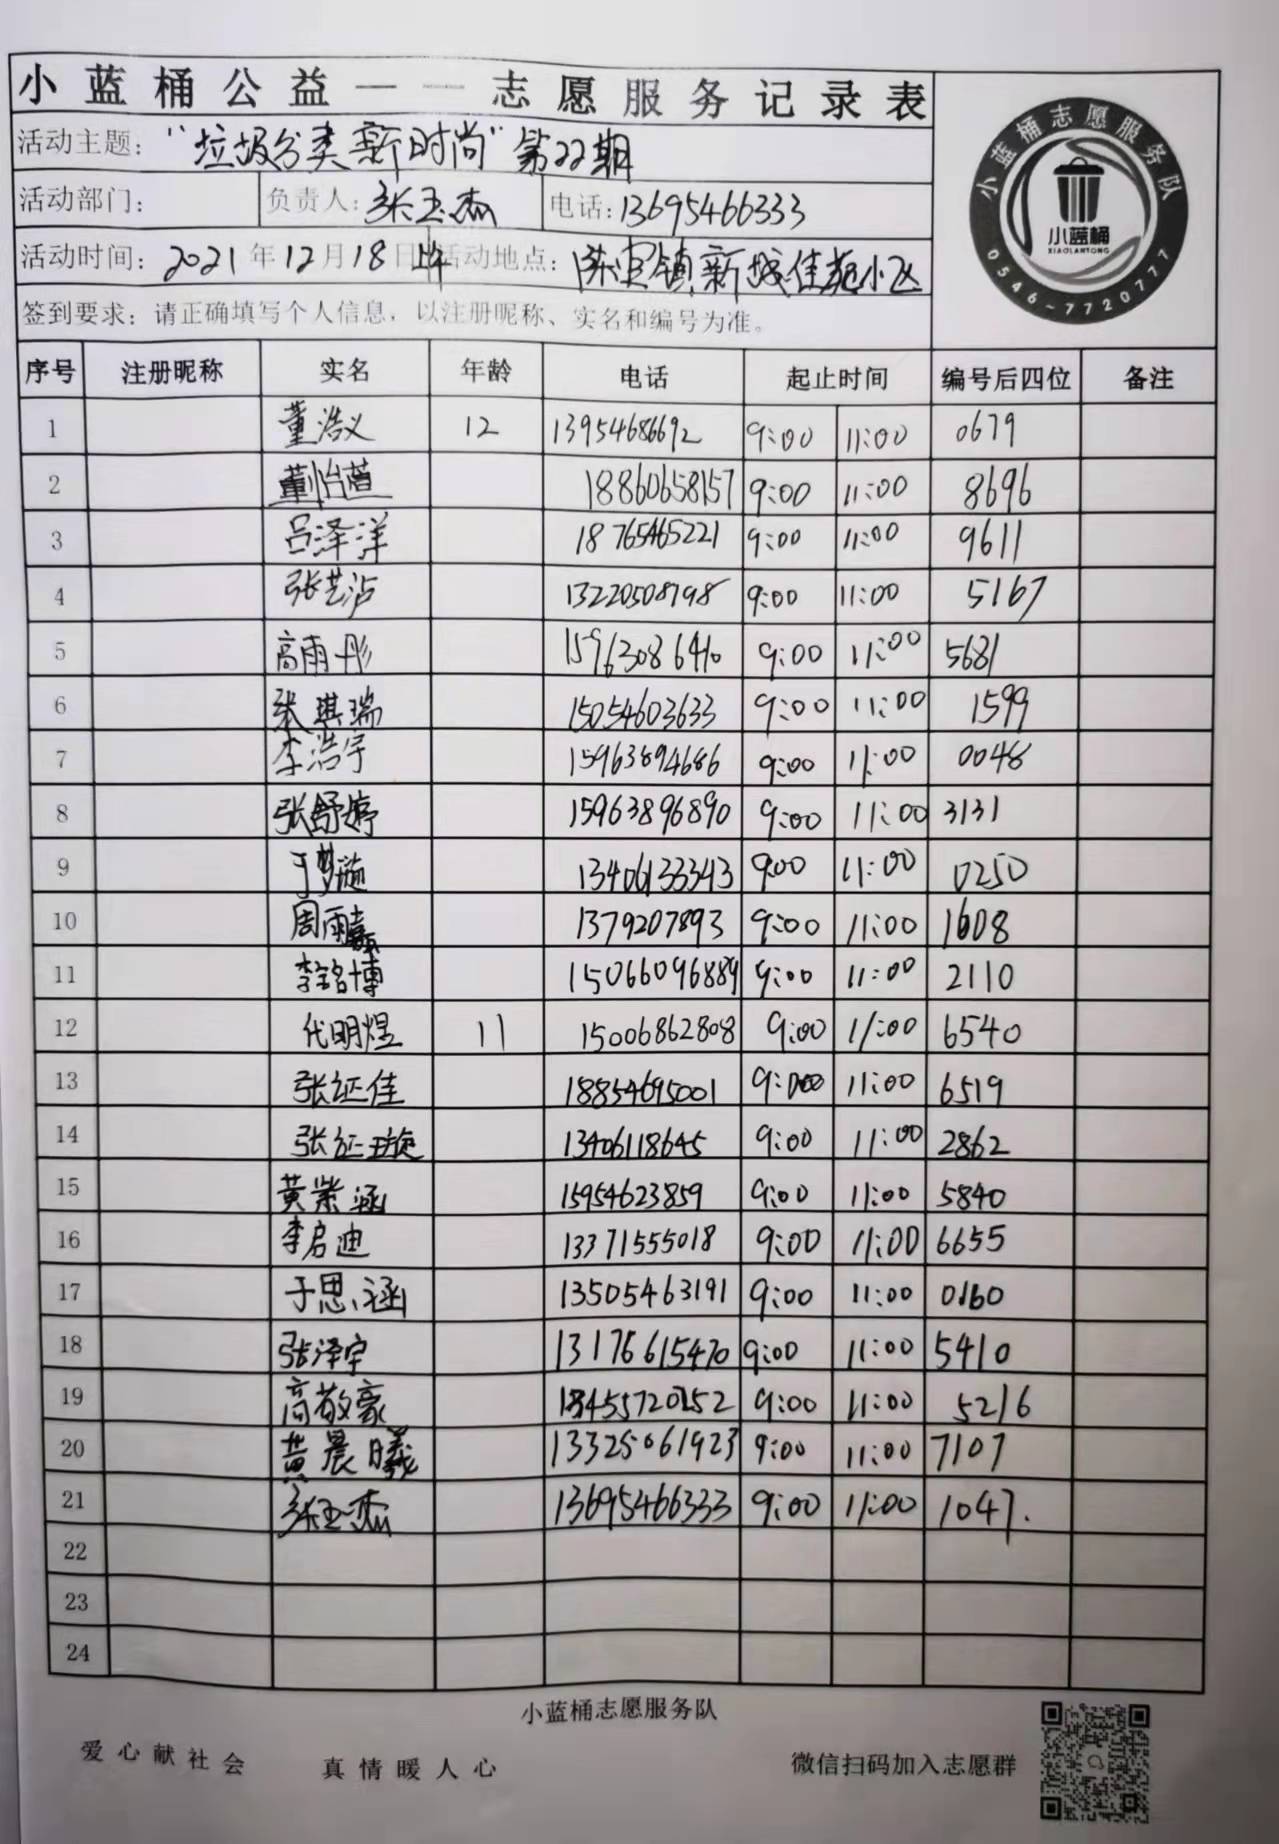 小蓝桶公益——志愿服务记录表
活动主题：“垃圾分类新时尚”第22期
活动部门： 负责人：张玉杰 电话：13695466333
活动时间：2021年12月18日上午 活动地点：陈官镇新城佳苑小区
签到要求：请正确填写个人信息，以注册昵称、实名和编号为准。
小蓝桶志愿服务队
小蓝桶
XIAOLANTONG
0546-7720777
序号 注册昵称 实名 年龄 电话 起止时间 编号后四位 备注
1 董浩义 12 13954686692 9:00 11:00 0679
2 董怡萱 18860658157 9:00 11:00 8696
3 吕泽洋 18765465221 9:00 11:00 9611
4 张艺泸 13220508798 9:00 11:00 5167
5 高雨彤 15963086410 9:00 11:00 5681
6 张琪瑞 15054603633 9:00 11:00 1599
7 李浩宇 15963894686 9:00 11:00 0048
8 张舒婷 15963896890 9:00 11:00 3131
9 于梦璇 13406133343 9:00 11:00 0250
10 周雨 1379207893 9:00 11:00 1608
11 李铭博 15066096889 9:00 11:00 2110
12 代明煜 11 15006862808 9:00 11:00 6540
13 张延佳 18854695001 9:00 11:00 6519
14 张延璇 13406118645 9:00 11:00 2862
15 黄紫涵 15954623859 9:00 11:00 5840
16 李启迪 13371555018 9:00 11:00 6655
17 于思涵 13505463191 9:00 11:00 0160
18 张泽宇 13176615470 9:00 11:00 5410
19 高敬豪 18455720152 9:00 11:00 5216
20 黄晨曦 13325061923 9:00 11:00 7107
21 张玉杰 13695466333 9:00 11:00 1047.
22
23
24
小蓝桶志愿服务队
爱心献社会 真情暖人心 微信扫码加入志愿群